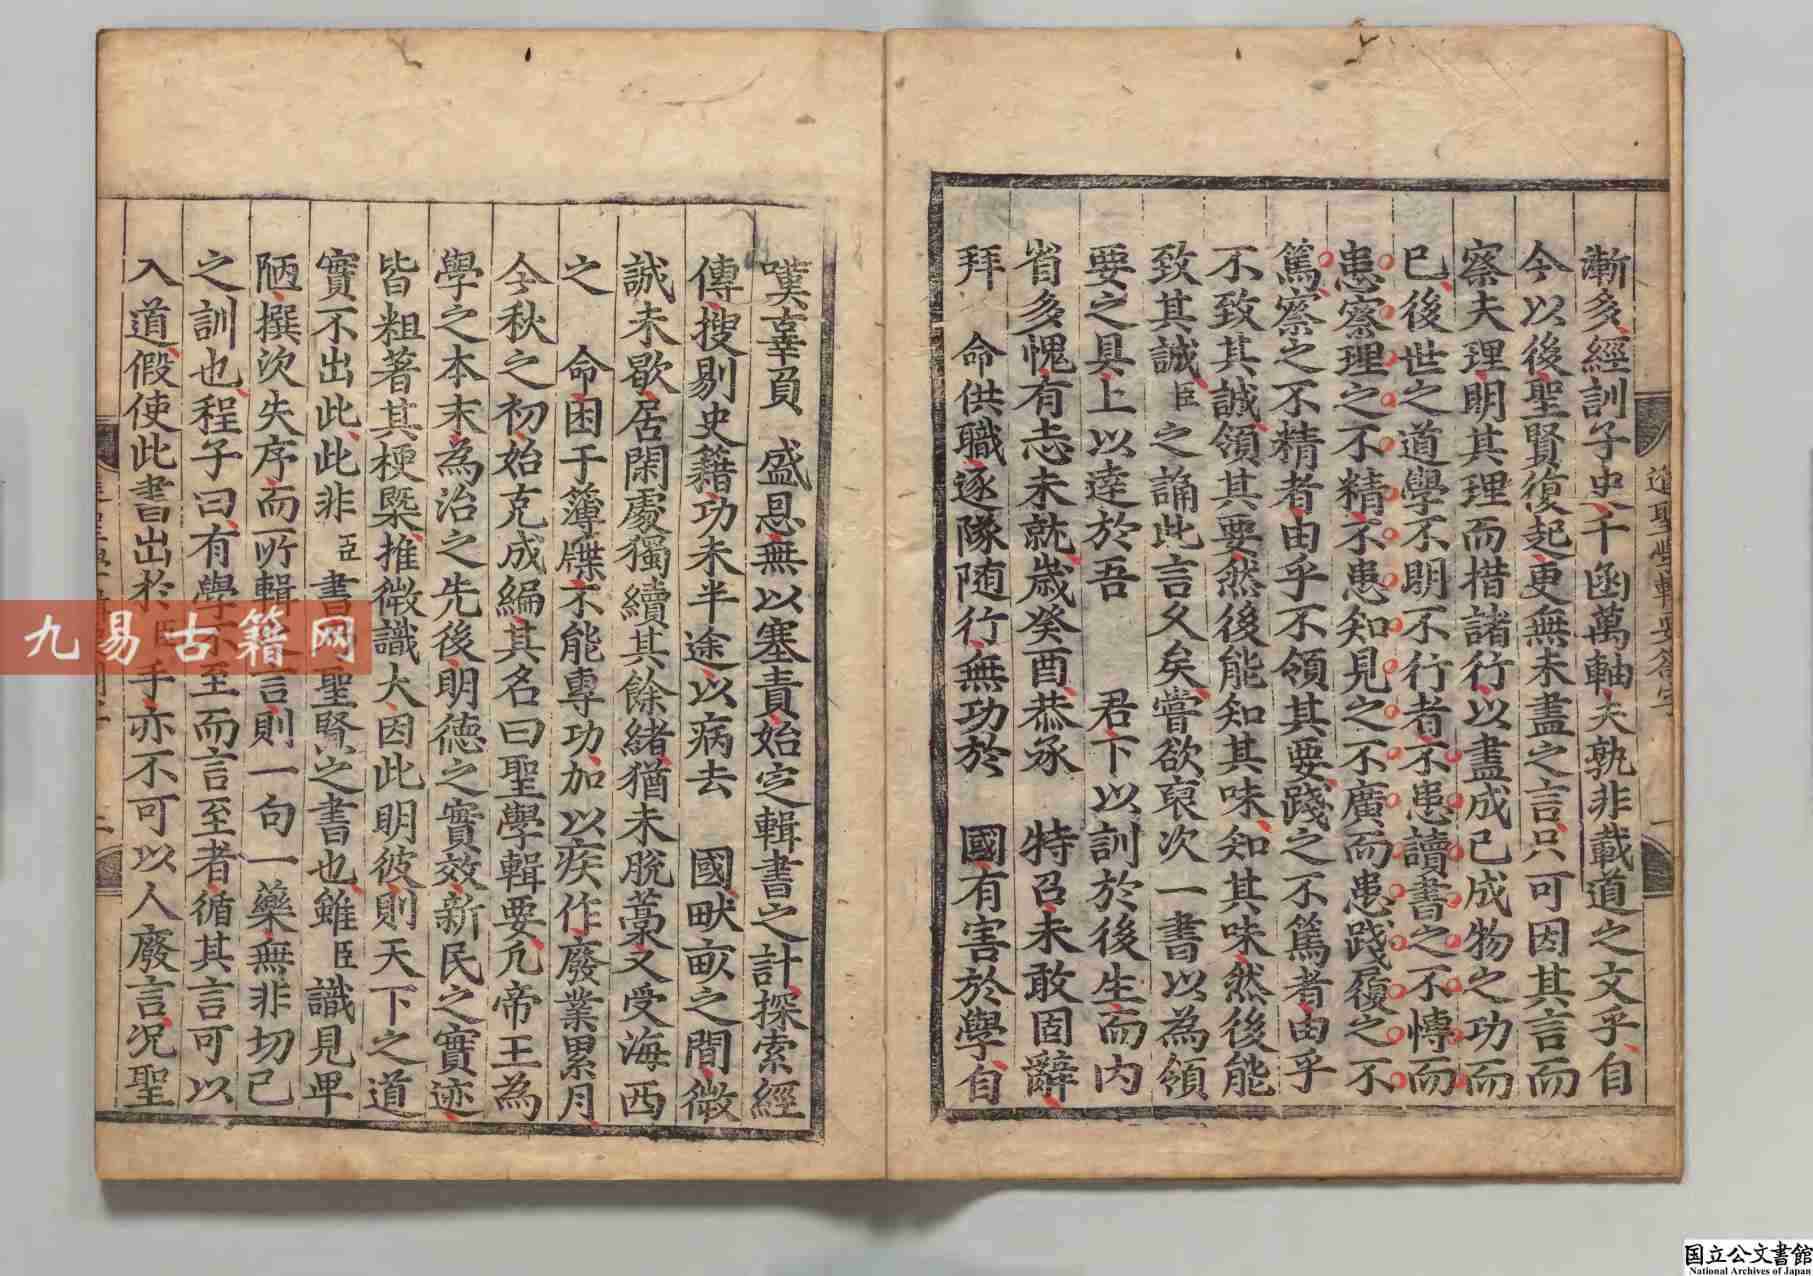 漸多經訓子史千函萬軸夫孰非載道之文乎自
今以後聖賢復起更無未盡之言只可因其言而
察夫理明其理而措諸行以盡成己成物之功而
已後世之道學不明不行者不患讀書之不博而
患察理之不精不患知見之不廣而患踐履之不
篤察之不精者由乎不領其要踐之不篤者由乎
不致其誠領其要然後能知其味知其味然後能
致其誠臣之誦此言久矣嘗欲裒次一書以為領
要之具上以達於吾 君下以訓於後生而內
省多愧有志未就歲癸酉恭承 特召未敢固辭
拜 命供職逐隊隨行無功於 國有害於學自
嘆辜負 盛恩無以塞責始定輯書之計探索經
傳搜剔史籍功未半途以病去 國畎畝之間微
誠未歇居閑處獨續其餘緒猶未脫藁又受海西
之 命困于簿牒不能專功加以疾作廢業累月
今秋之初始克成編其名曰聖學輯要凡帝王為
學之本末為治之先後明德之實效新民之實迹
皆粗著其梗槩推微識大因此明彼則天下之道
實不出此此非臣書 聖賢之書也雖臣識見卑
陋撰次失序而所輯 言則一句一藥無非切己
之訓也程子曰有學不至而言至者循其言可以
入道假使此書出於臣手亦不可以人廢言況聖
進聖學輯要箚子
一
九易古籍网
国立公文書館
National Archives of Japan